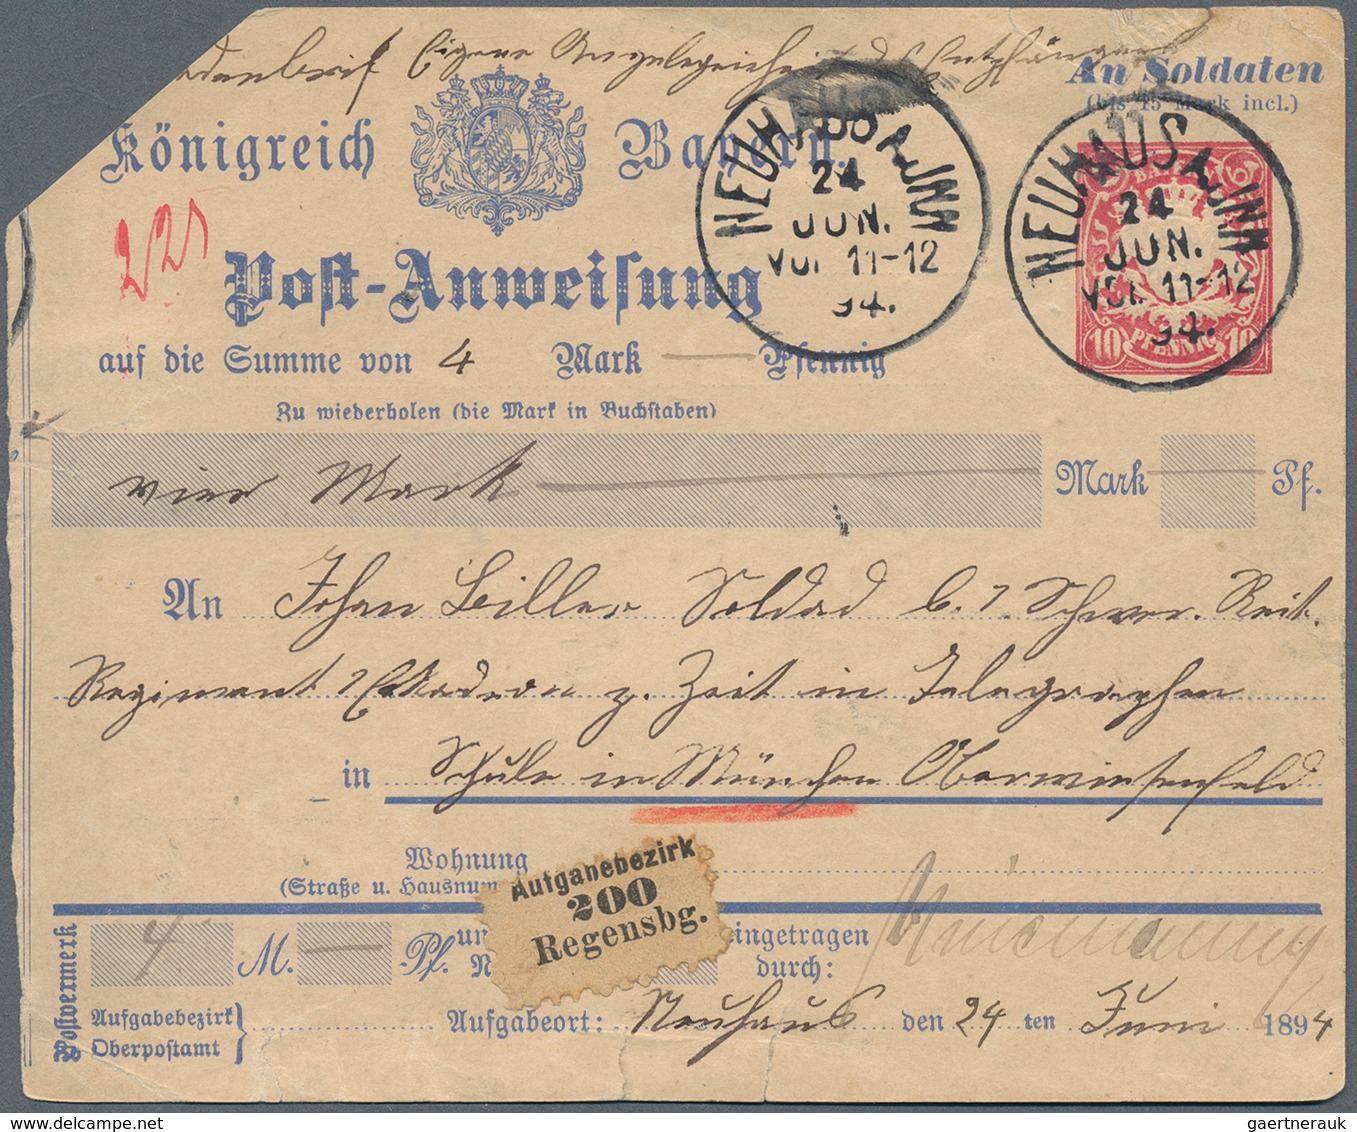 Soldatenbrief Eigene Angelegenheit des Empfängers
An Soldaten
(bis 15 Mark incl.)
Königreich Bayern.
NEUHAUS A. INN
24
JUN.
Vor. 11-12
94.
NEUHAUS A. INN
24
JUN.
Vor. 11-12
94.
BAYERN
10 PFENNIG 10
Post-Anweisung
auf die Summe von 4 Mark — Pfennig
Zu wiederholen (die Mark in Buchstaben)
vier Mark — Mark — Pf.
An Johan Biller Soldad b. 7 Schwer. Reit.
Regiment Eskadron z. Zeit in Telegraphen
in Schule in München Oberwiesenfeld
Wohnung
(Straße u. Hausnum
Aufgabebezirk
200
Regensbg.
Postvermerk
4 M. — Pf. un
N
eingetragen
durch:
Aufgabebezirk
Oberpostamt
Aufgabeort: Neuhaus den 24 ten Juni 1894
gaertnerauk